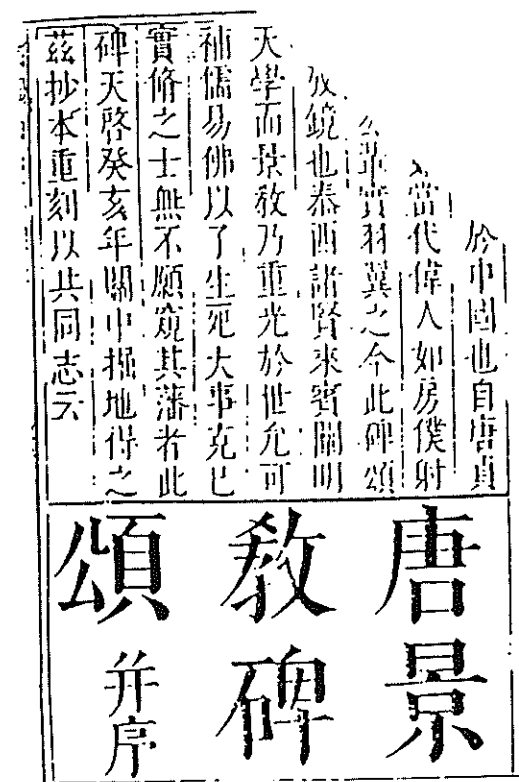 於中國也自唐貞
當代偉人如房僕射
公輩實羽翼之今此碑頌
攷鏡也泰西諸賢來賓闡明
天學而景教乃重光於世允可
補儒易佛以了生死大事克已
實脩之士無不願窺其藩者此
碑天啓癸亥年關中掘地得之
茲抄本重刻以共同志云
唐景
教碑
頌并序